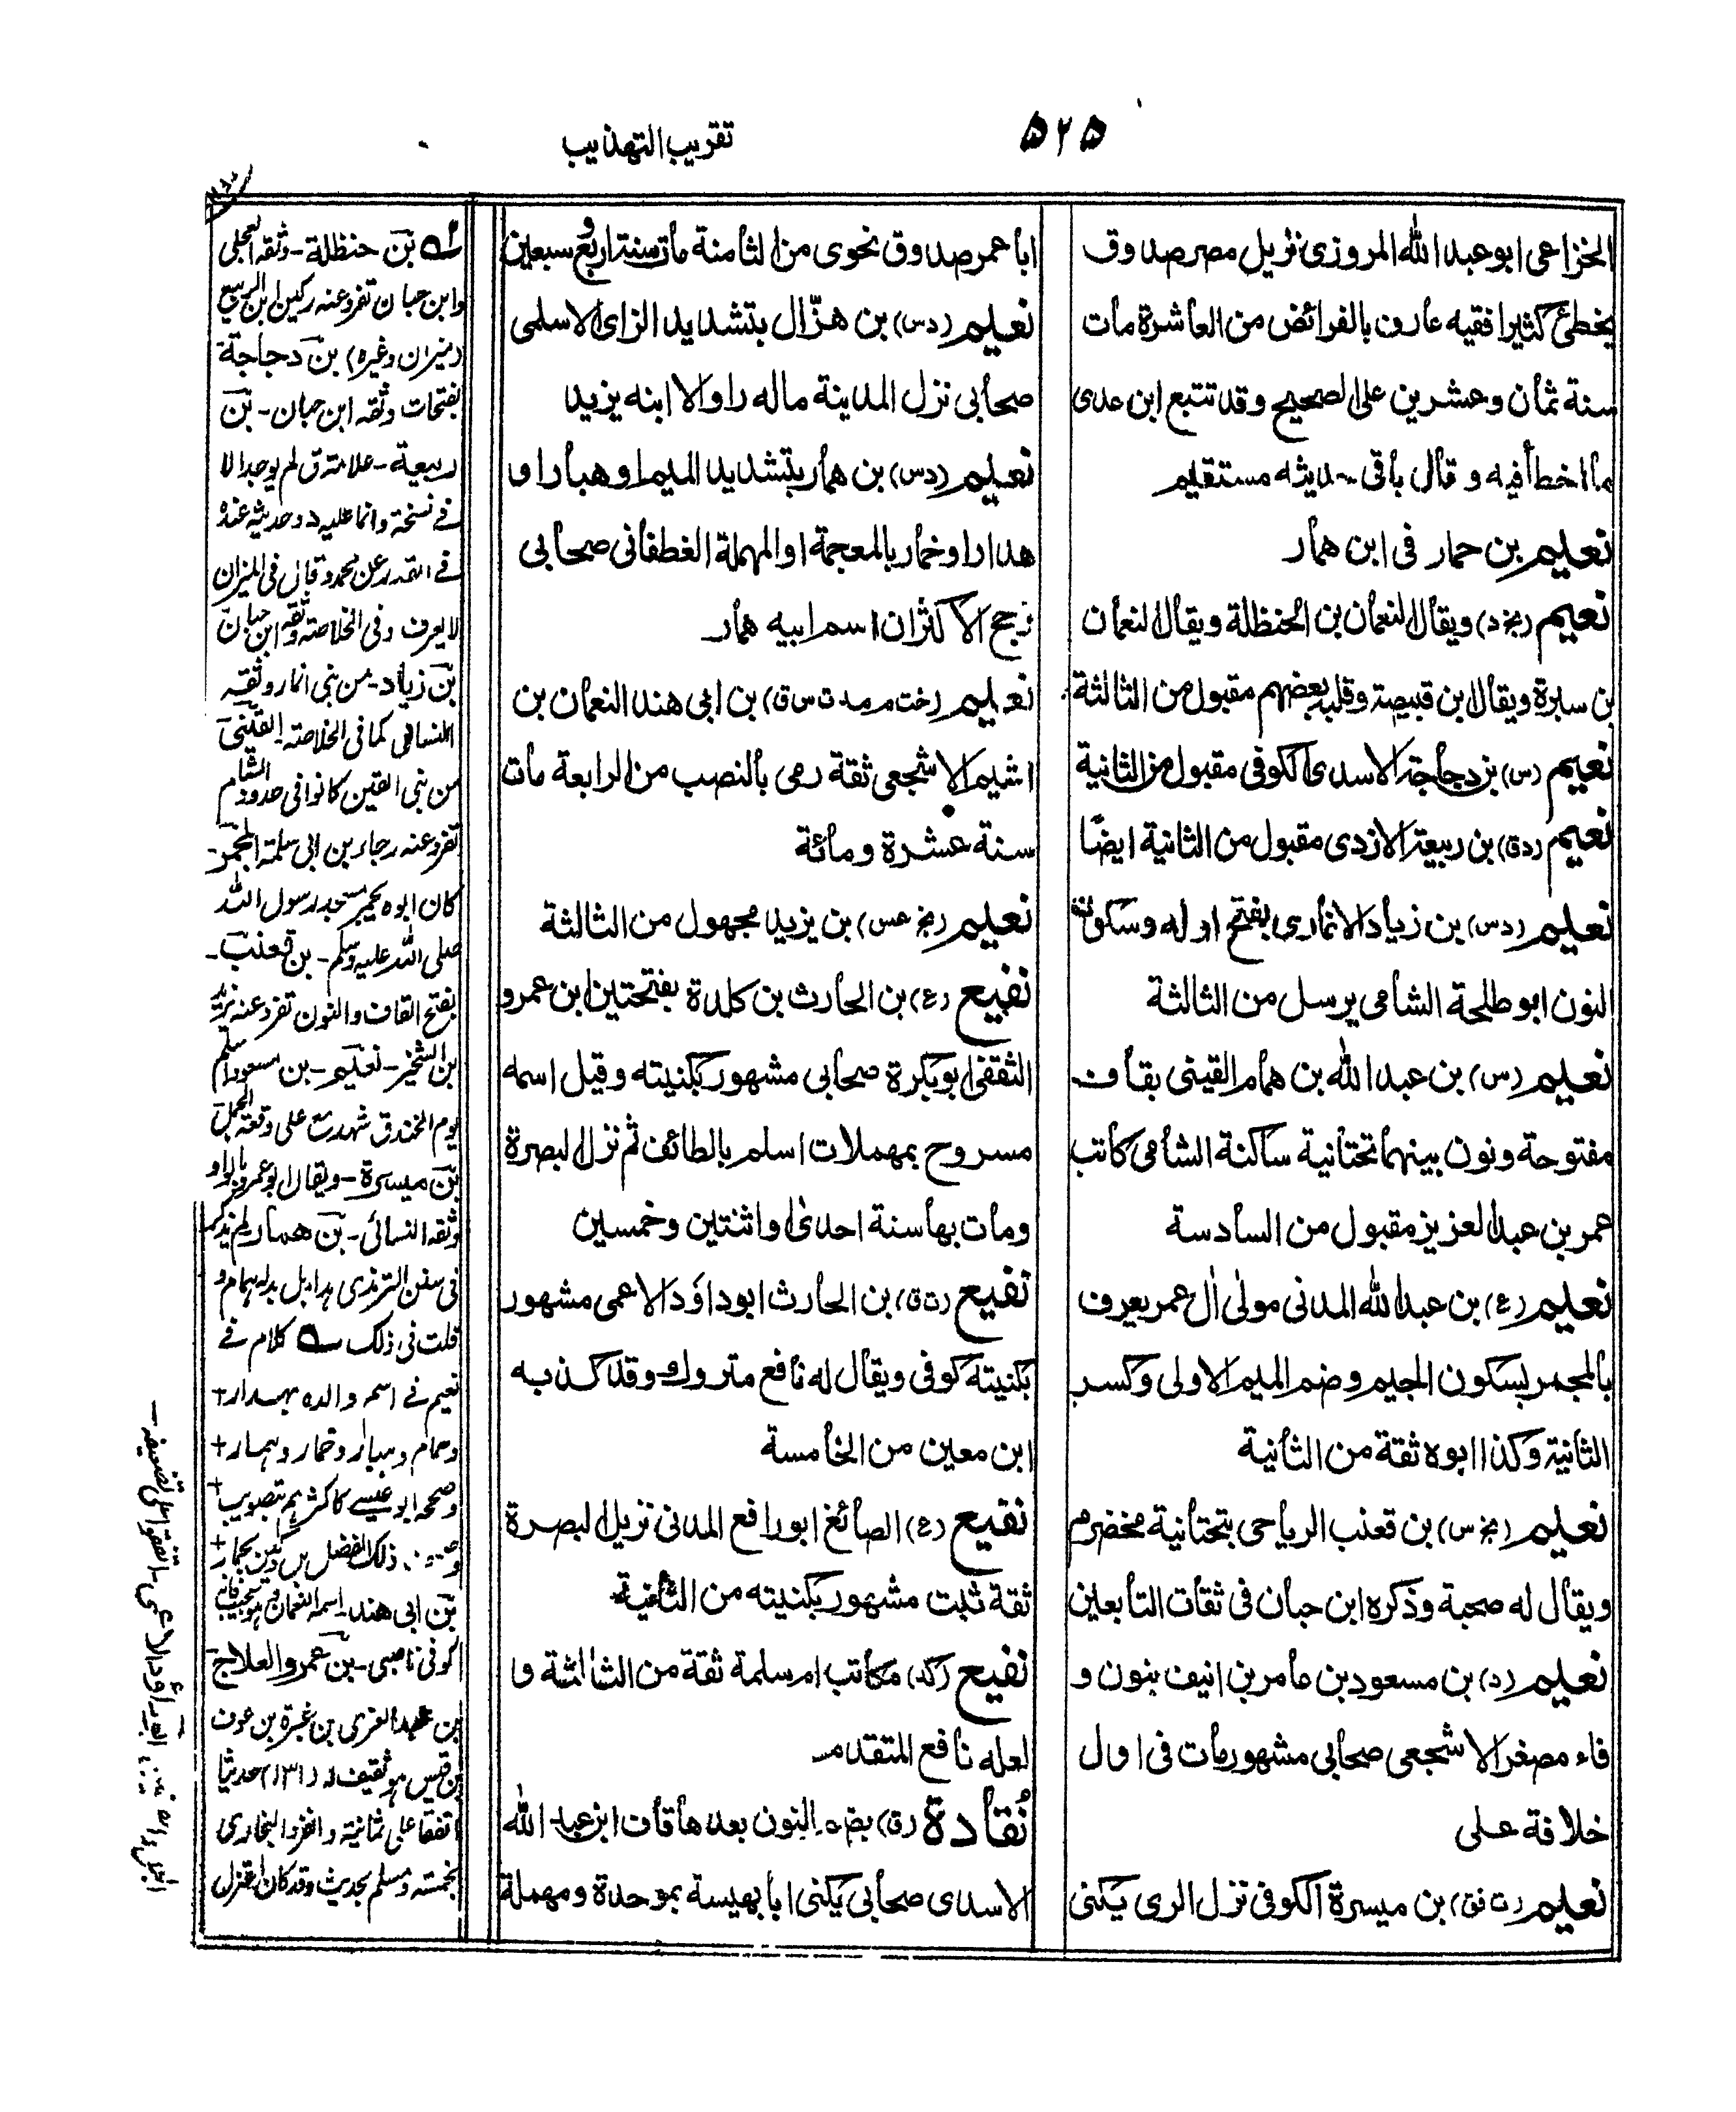 تقريب التهذيب
۵۲۵
الخزاعى ابو عبد الله المروزى نزيل مصر صدوق
يخطئ كثيرا فقيه عارف بالفرائض من العاشرة مات
سنة ثمان وعشرين على الصحيح وقد تتبع ابن عدى
ما اخطأ فيه وقال باقى حديثه مستقيم
نعيم بن حمار فى ابن همار
نعيم (بخ د) ويقال النعمان بن الحنظلة ويقال النعمان
بن سبرة ويقال ابن قبيصة وقلبه بعضهم مقبول من الثالثة
نعيم (س) بن دجاجة الاسدى الكوفى مقبول من الثانية
نعيم (د ق) بن ربيعة الازدى مقبول من الثانية ايضًا
نعيم (د س) بن زياد الانمارى بفتح اوله وسكون
النون ابو طلحة الشامى يرسل من الثالثة
نعيم (س) بن عبد الله بن همام القينى بقاف
مفتوحة ونون بينهما تحتانية ساكنة الشامى كاتب
عمر بن عبد العزيز مقبول من السادسة
نعيم (ع) بن عبد الله المدنى مولى اٰل عمر يعرف
بالمجمر بسكون الجيم وضم الميم الاولى وكسر
الثانية وكذا ابوه ثقة من الثانية
نعيم (بخ س) بن قعنب الرياحى بتحتانية مخضرم
ويقال له صحبة وذكره ابن حبان فى ثقات التابعين
نعيم (د) بن مسعود بن عامر بن انيف بنون و
فاء مصغر الاشجعى صحابى مشهور مات فى اول
خلافة على
نعيم (ت فق) بن ميسرة الكوفى نزل الرى يكنى
ابا عمر صدوق نحوى من الثامنة مات سنة اربع وسبعين
نعيم (د س) بن هزّال بتشديد الزاى الاسلمى
صحابى نزل المدينة ماله راو الا ابنه يزيد
نعيم (د س) بن همار بتشديد الميم او هبار او
هدار او خمار بالمعجمة او المهملة الغطفانى صحابى
رجح الاكثر ان اسم ابيه همار
نعيم (خت م مد ت س ق) بن ابى هند النعمان بن
اشيم الاشجعى ثقة رمى بالنصب من الرابعة مات
سنة عشرة ومائة
نعيم (بخ عس) بن يزيد مجهول من الثالثة
نفيع (ع) بن الحارث بن كلدة بفتحتين ابن عمرو
الثقفى ابو بكرة صحابى مشهور بكنيته وقيل اسمه
مسروح بمهملات اسلم بالطائف ثم نزل البصرة
ومات بها سنة احدى او اثنتين وخمسين
نفيع (ت ق) بن الحارث ابو داؤد الاعمى مشهور
بكنيته كوفى ويقال له نافع متروك وقد كذبه
ابن معين من الخامسة
نفيع (ع) الصائغ ابو رافع المدنى نزيل البصرة
ثقة ثبت مشهور بكنيته من الثانية
نفيع (كد) مكاتب ام سلمة ثقة من الثالثة و
لعله نافع المتقدم
نُقادة (ق) بضم النون بعدها قاف ابن عبد الله
الاسدى صحابى يكنى ابا بهيسة بموحدة ومهملة
بن حنظلة - وثقه العجلى
وابن حبان تفرد عنه ركين ابن الربيع
(ميزان وغيره) بن دجاجة
بفتحات وثقه ابن حبان - بن
ربيعة - علامة ق لم يوجد الا
فى نسخة وانما عليه د وحديثه عنده
فى القدر عن محمد وقال فى الميزان
لا يعرف وفى الخلاصة وثقه ابن حبان
بن زياد - من بنى انمار وثقه
النسائى كما فى الخلاصة القينى
من بنى القين كانوا فى حدود الشام
تفرد عنه رجاء بن ابى سلمة المجمر -
كان ابوه يجمر مسجد رسول الله
صلى الله عليه وسلم - بن قعنب -
بفتح القاف والنون تفرد عنه يزيد
ابن الشخير - نعيم - بن مسعود اسلم
يوم الخندق شهد مع على وقعة الجمل
بن ميسرة - ويقال ابو عمرو بالواو
وثقه النسائى - بن همار لم يذكر
فى سنن الترمذى هدا بل بدله همام و
قلت فى ذلك كلام فى
نعيم فى اسم والده بهدار +
وهمام وهبار وخمار وهمار +
وصححه ابو عيسى كاكثرهم بتصويب +
ذلك الفضل بن دكين بحمار +
بن ابى هند - اسمه النعمان
كوفى ناصبى - بن عمرو العلاج -
بن عبد العزى بن غيرة بن عوف
بن قيس هو ثقيف له (۱۳۲) حديثا
اتفقا على ثمانية وانفرد البخارى
بخمسة ومسلم بحديث وقد كان اعتزل
ابو داؤد الاعمى - اتفقوا على تضعيفه -